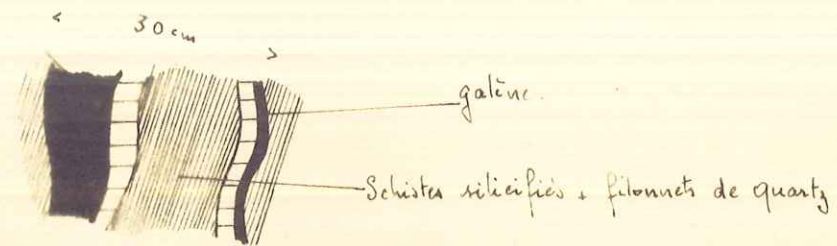 30 cm
galène.
Schistes silicifiés + filonnets de quartz